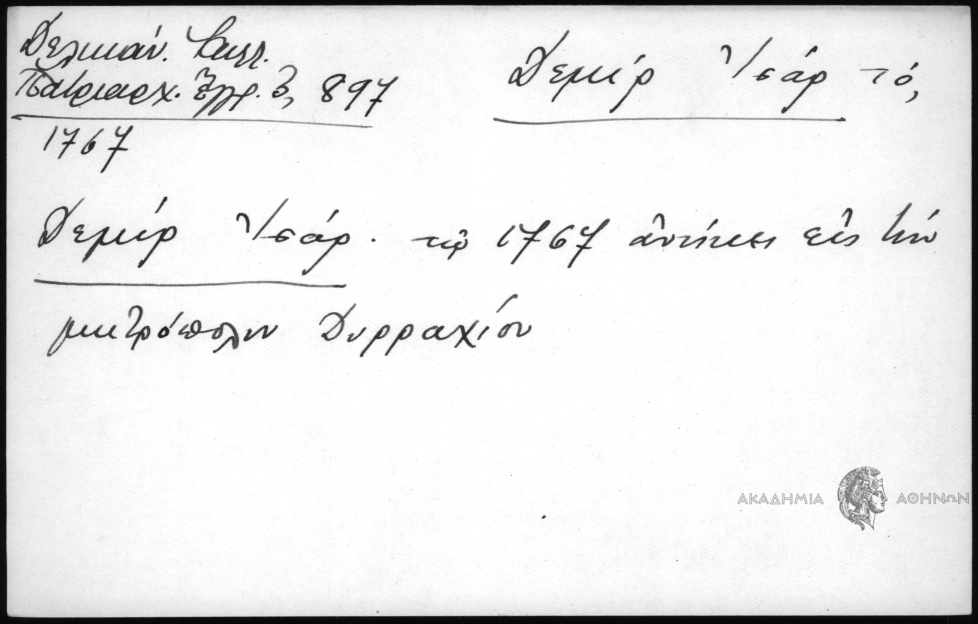 Δελικάν. Καλλ.
Πατριαρχ. Ἔγγρ. 3, 897
1767
Δεμίρ Ἱσάρ τό,
Δεμίρ Ἱσάρ. τῷ 1767 ἀνῆκει εἰς τήν
μητρόπολιν Δυρραχίου
ΑΚΑΔΗΜΙΑ ΑΘΗΝΩΝ